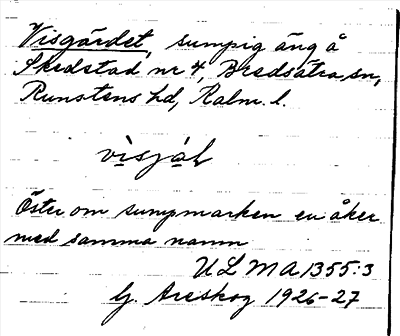 Visgärdet, sumpig äng å
Skedstad nr 4, Bredsätra sn,
Runstens hd, Kalm. l.
visjäl
Öster om sumpmarken en åker
med samma namn
ULMA 1355:3
G. Areskog 1926-27